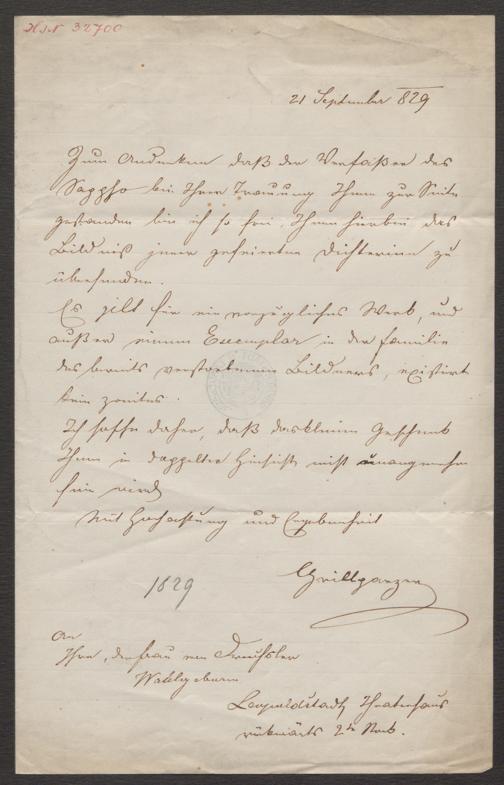 H.I.N 32700
21 September 829
Zum Andenken daß der Verfaßer des
Sappho bei Ihrer Trauung Ihnen zur Seite
gestanden bin ich so frei, Ihnen hierbei das
Bildniß jener gefeierten Dichterinn zu
übersenden.
Es gilt für ein vorzügliches Werk, und
außer einem Exemplar in der Familie
des bereits verstorbenen Bildners, existirt
kein zweites.
Ich hoffe daher, daß das kleine Geschenk
Ihnen in doppelter Hinsicht nicht unangenehm
sein wird
Mit Hochachtung und Ergebenheit
Grillparzer
1829
An
Ihre, der Frau von
Wohlgeboren
Leopoldstadt Theaterhaus
rückwärts 2te Stock.